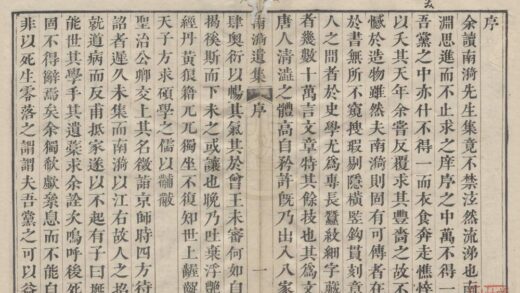 序
余讀南漪先生集竟不禁泫然流涕也
淵思進而不止求之庠序之中萬不得一
吾黨之中亦什不得一而衣食奔走憔悴
以夭其天年余嘗反覆求其豐嗇之故不
憾於造物雖然夫南漪則固有可傳者在
於書無所不窺搜瑕剔隱橫鑿鉤貫刻章
人之閒者於史學尤爲專長蠶紋細字
者幾數十萬言文章特其餘技也其爲文
唐人清澁之體高自矜許旣乃出入八家
南漪遺集 序 一
肆奥衍以暢其氣其於曾王未審何如自
揚後斯而下未之或讓也晚乃吐棄浮艶
經丹黃狼籍兀兀獨坐不復知世上齷齪
天子方求碩學之儒以黼黻
聖治公卿交上其名徵詣京師時四方待
詔者遲久未集而南漪以江右故人之招
就道病而反甫抵家遂以不起有子曰
能世其學手其遺藁求余詮次嗚呼後死
固不得辭焉矣余獨歎息而不能自
非以死生零落之謂謂夫吾黨之可以益